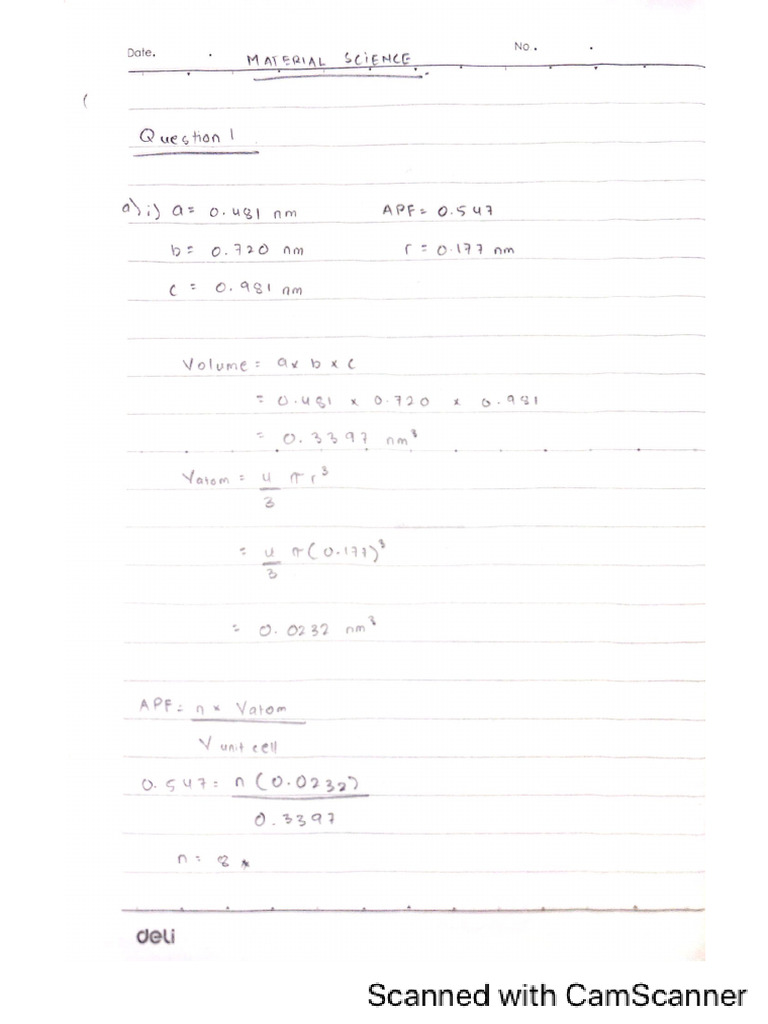 Date. . MATERIAL SCIENCE No. .
(
Question 1
a) i) a = 0.481 nm APF = 0.547
b = 0.720 nm r = 0.177 nm
c = 0.981 nm
Volume = a x b x c
= 0.481 x 0.720 x 0.981
= 0.3397 nm³
Vatom = 4/3 π r³
= 4/3 π (0.177)³
= 0.0232 nm³
APF = n x Vatom
V unit cell
0.547 = n (0.0232)
0.3397
n = 8
deli
Scanned with CamScanner